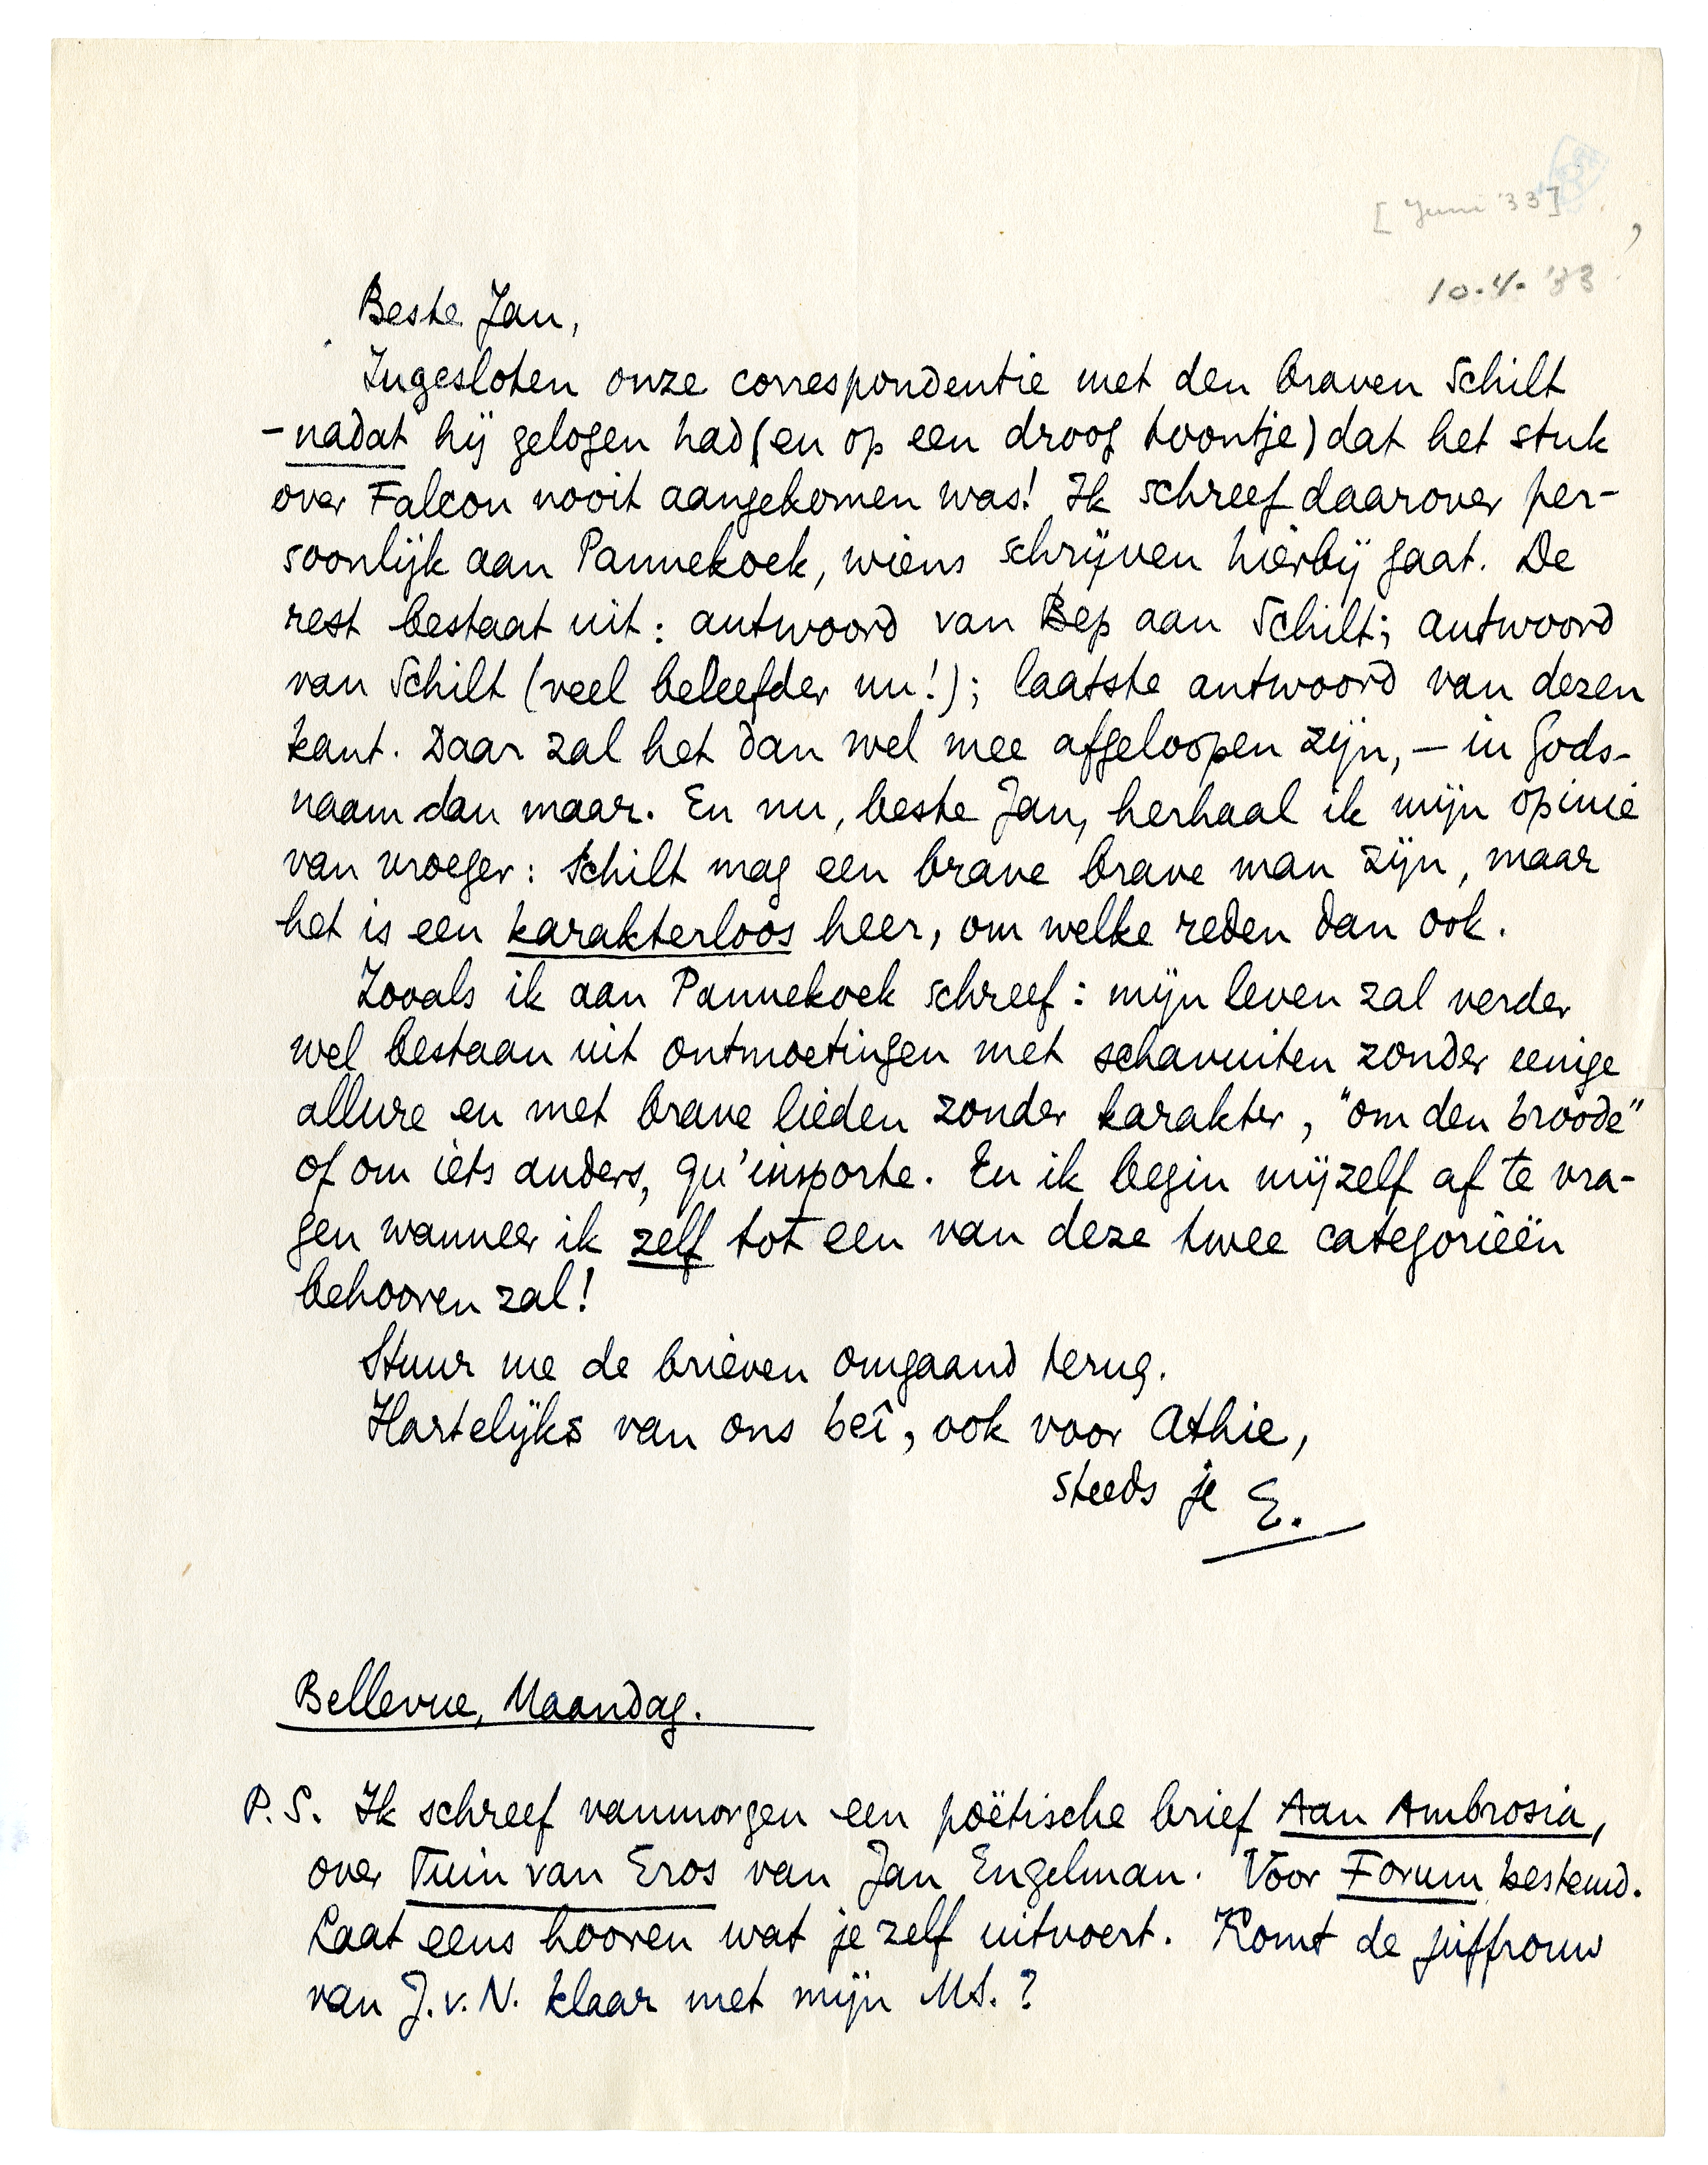 [Juni '33]
10.4.'33
Beste Jan,
Ingesloten onze correspondentie met den braven Schilt
- nadat hij gelogen had (en op een droog toontje) dat het stuk
over Falcon nooit aangekomen was! Ik schreef daarover per-
soonlijk aan Pannekoek, wiens schrijven hierbij gaat. De
rest bestaat uit: antwoord van Bep aan Schilt; antwoord
van Schilt (veel beleefder nu!); laatste antwoord van dezen
kant. Daar zal het dan wel mee afgeloopen zijn, — in Gods-
naam dan maar. En nu, beste Jan, herhaal ik mijn opinie
van vroeger: Schilt mag een brave brave man zijn, maar
het is een karakterloos heer, om welke reden dan ook.
Zooals ik aan Pannekoek schreef: mijn leven zal verder
wel bestaan uit ontmoetingen met schavuiten zonder eenige
allure en met brave lieden zonder karakter, "om den broode"
of om iets anders, qu'importe. En ik begin mijzelf af te vra-
gen wanneer ik zelf tot een van deze twee categorieën
behooren zal!
Stuur me de brieven omgaand terug.
Hartelijks van ons beî, ook voor Athie,
steeds je E.
Bellevue, Maandag.
P.S. Ik schreef vanmorgen een poëtische brief Aan Ambrosia,
over Tuin van Eros van Jan Engelman. Voor Forum bestemd.
Laat eens hooren wat je zelf uitvoert. Komt de juffrouw
van J.v.N. klaar met mijn MS.?